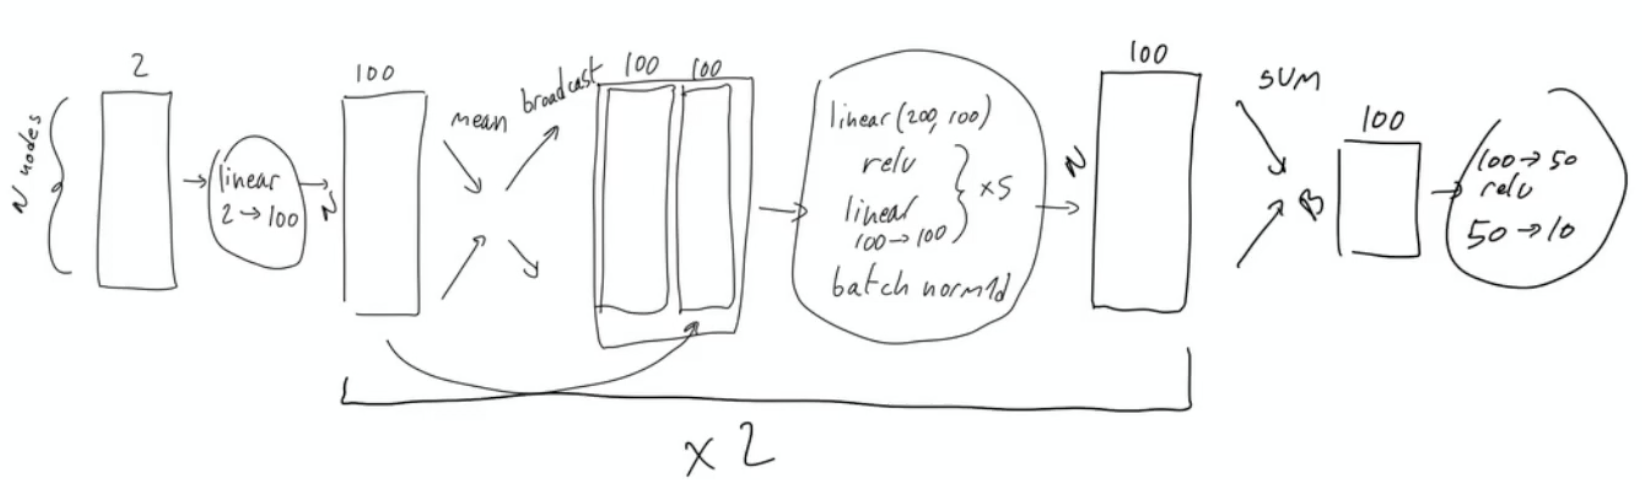 N nodes
2
linear
2→100
100
N
mean
broadcast
100
100
linear(200,100)
relu
linear
100→100
×5
batch norm1d
N
100
SUM
B
100
100→50
relu
50→10
×2